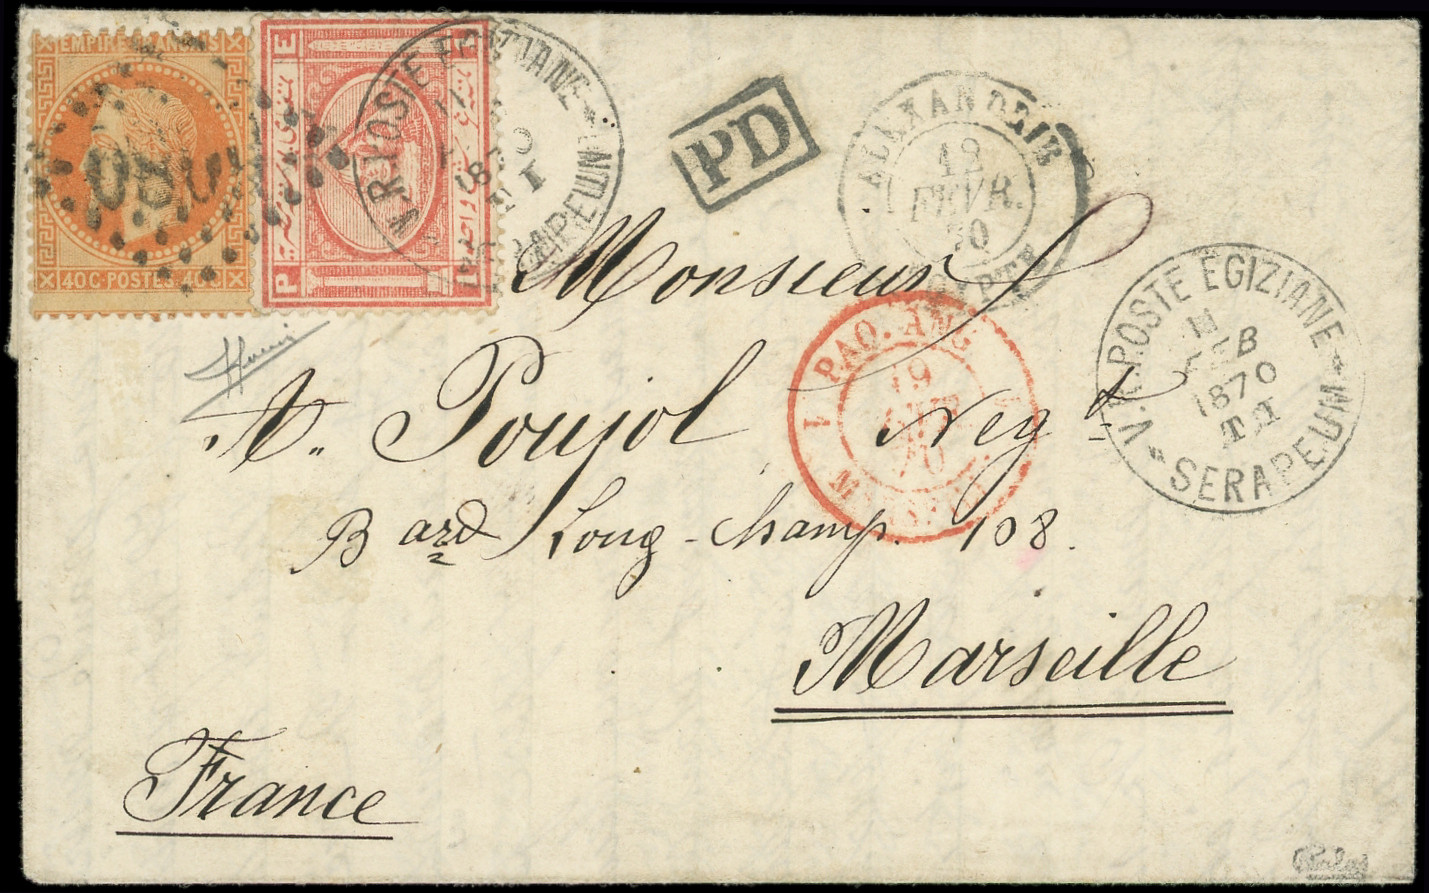 EMPIRE FRANÇAIS
40 C POSTES 40 C
P E
V.R. POSTE EGIZIANE
1870
SERAPEUM
PD
ALEXANDRIE
12
FEVR.
70
V.R. POSTE EGIZIANE
11
FEB
1870
T.I
SERAPEUM
PAQ. ANG.
19
70
Monsieur
A. Poujol Negt
Bard Long-champ. 108.
Marseille
France